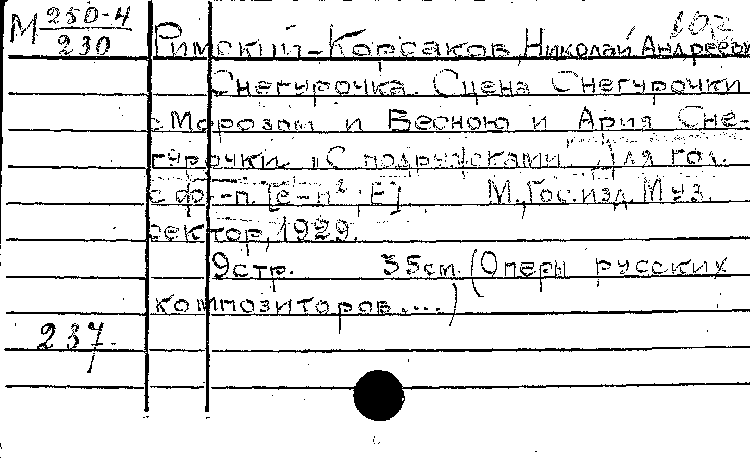 М 250-4
230
102
Римский-Корсаков, Николай Андреевич
Снегурочка. Сцена Снегурочки
с Морозом и Весною и Ария Сне-
гурочки „С подружками" Для гол.
с ф.-п. [e-h²; E]. М., Гос. изд. Муз.
сектор, 1929.
9 стр. 35 см. (Оперы русских
композиторов....)
237.